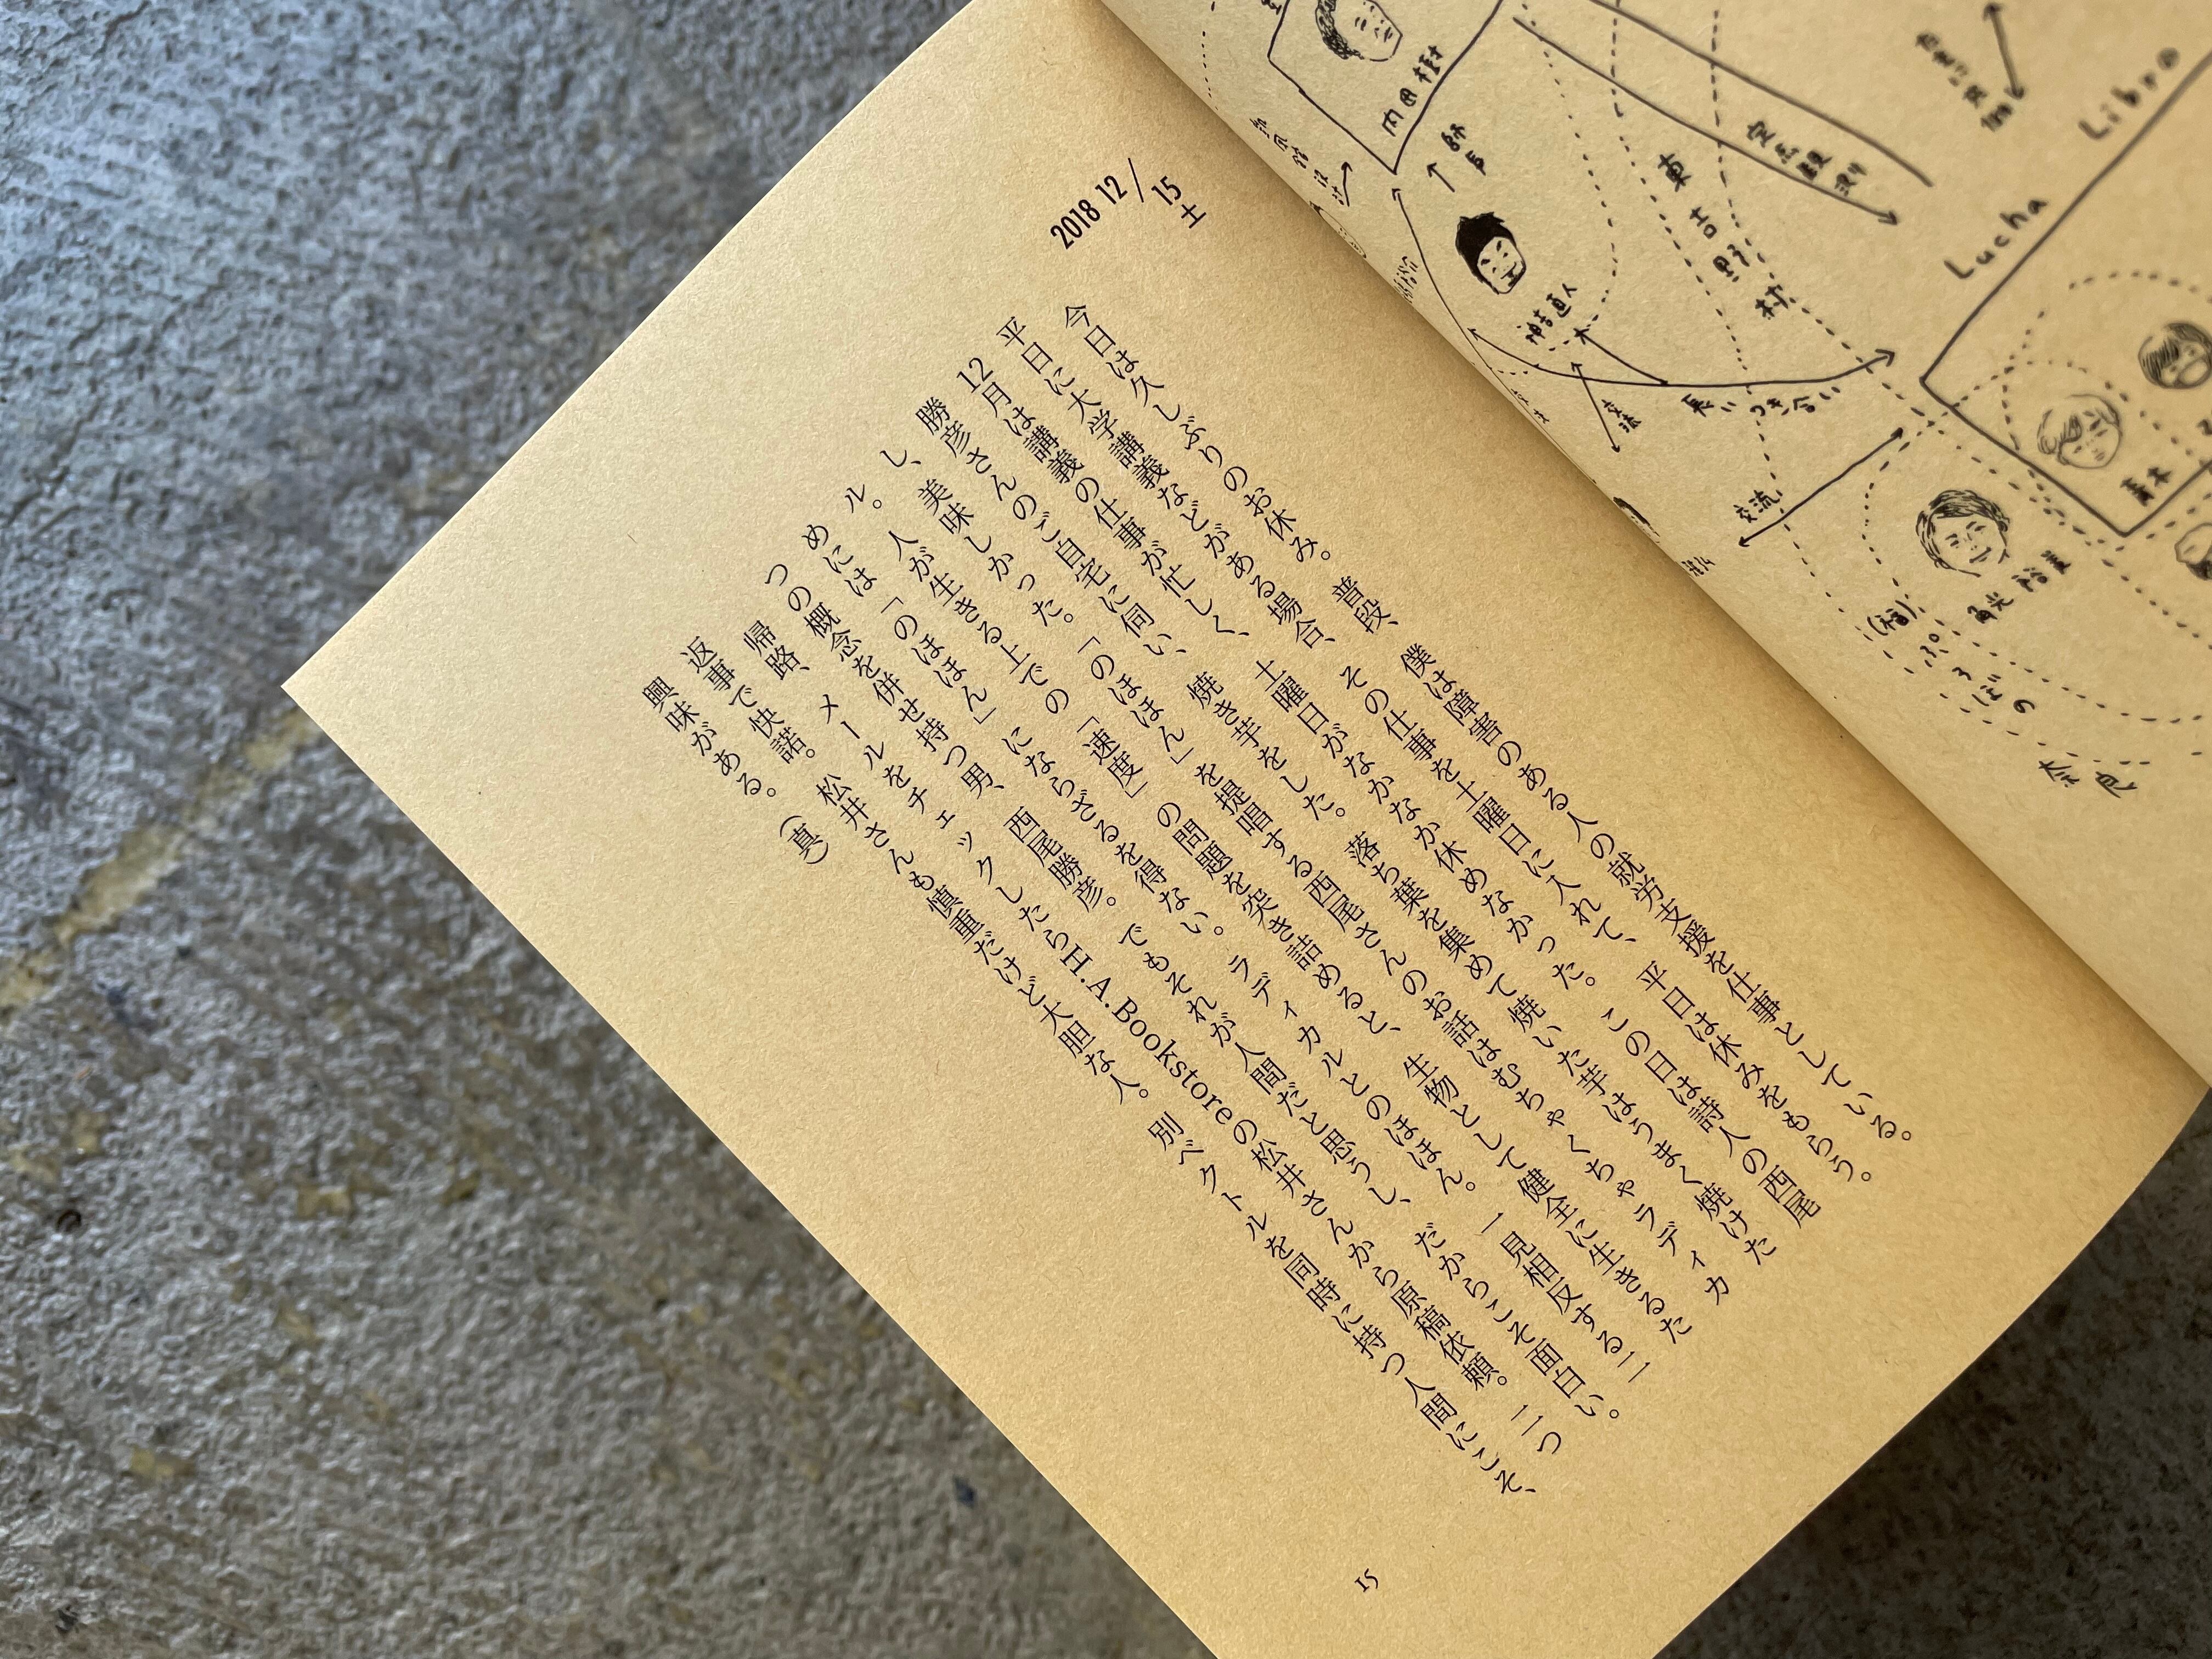 2018 12/15 土
今日は久しぶりのお休み。普段、僕は障害のある人の就労支援を仕事としている。
平日に大学講義などがある場合、その仕事を土曜日に入れて、平日は休みをもらう。
12月は講義の仕事が忙しく、土曜日がなかなか休めなかった。この日は詩人の西尾
勝彦さんのご自宅に伺い、焼き芋をした。落ち葉を集めて焼いた芋はうまく焼けた
し、美味しかった。「のほほん」を提唱する西尾さんのお話はむちゃくちゃラディカ
ル。人が生きる上での「速度」の問題を突き詰めると、生物として健全に生きるた
めには「のほほん」にならざるを得ない。ラディカルとのほほん。一見相反する二
つの概念を併せ持つ男、西尾勝彦。でもそれが人間だと思うし、だからこそ面白い。
帰路、メールをチェックしたらH.A.Bookstoreの松井さんから原稿依頼。二つ
返事で快諾。松井さんも慎重だけど大胆な人。別ベクトルを同時に持つ人間にこそ、
興味がある。（真）
15
内田樹
師事
定点観測
東吉野村
Lucha
Libro
神吉直人
長いつき合い
交流
青木
(福)ぷろぼの
奈良